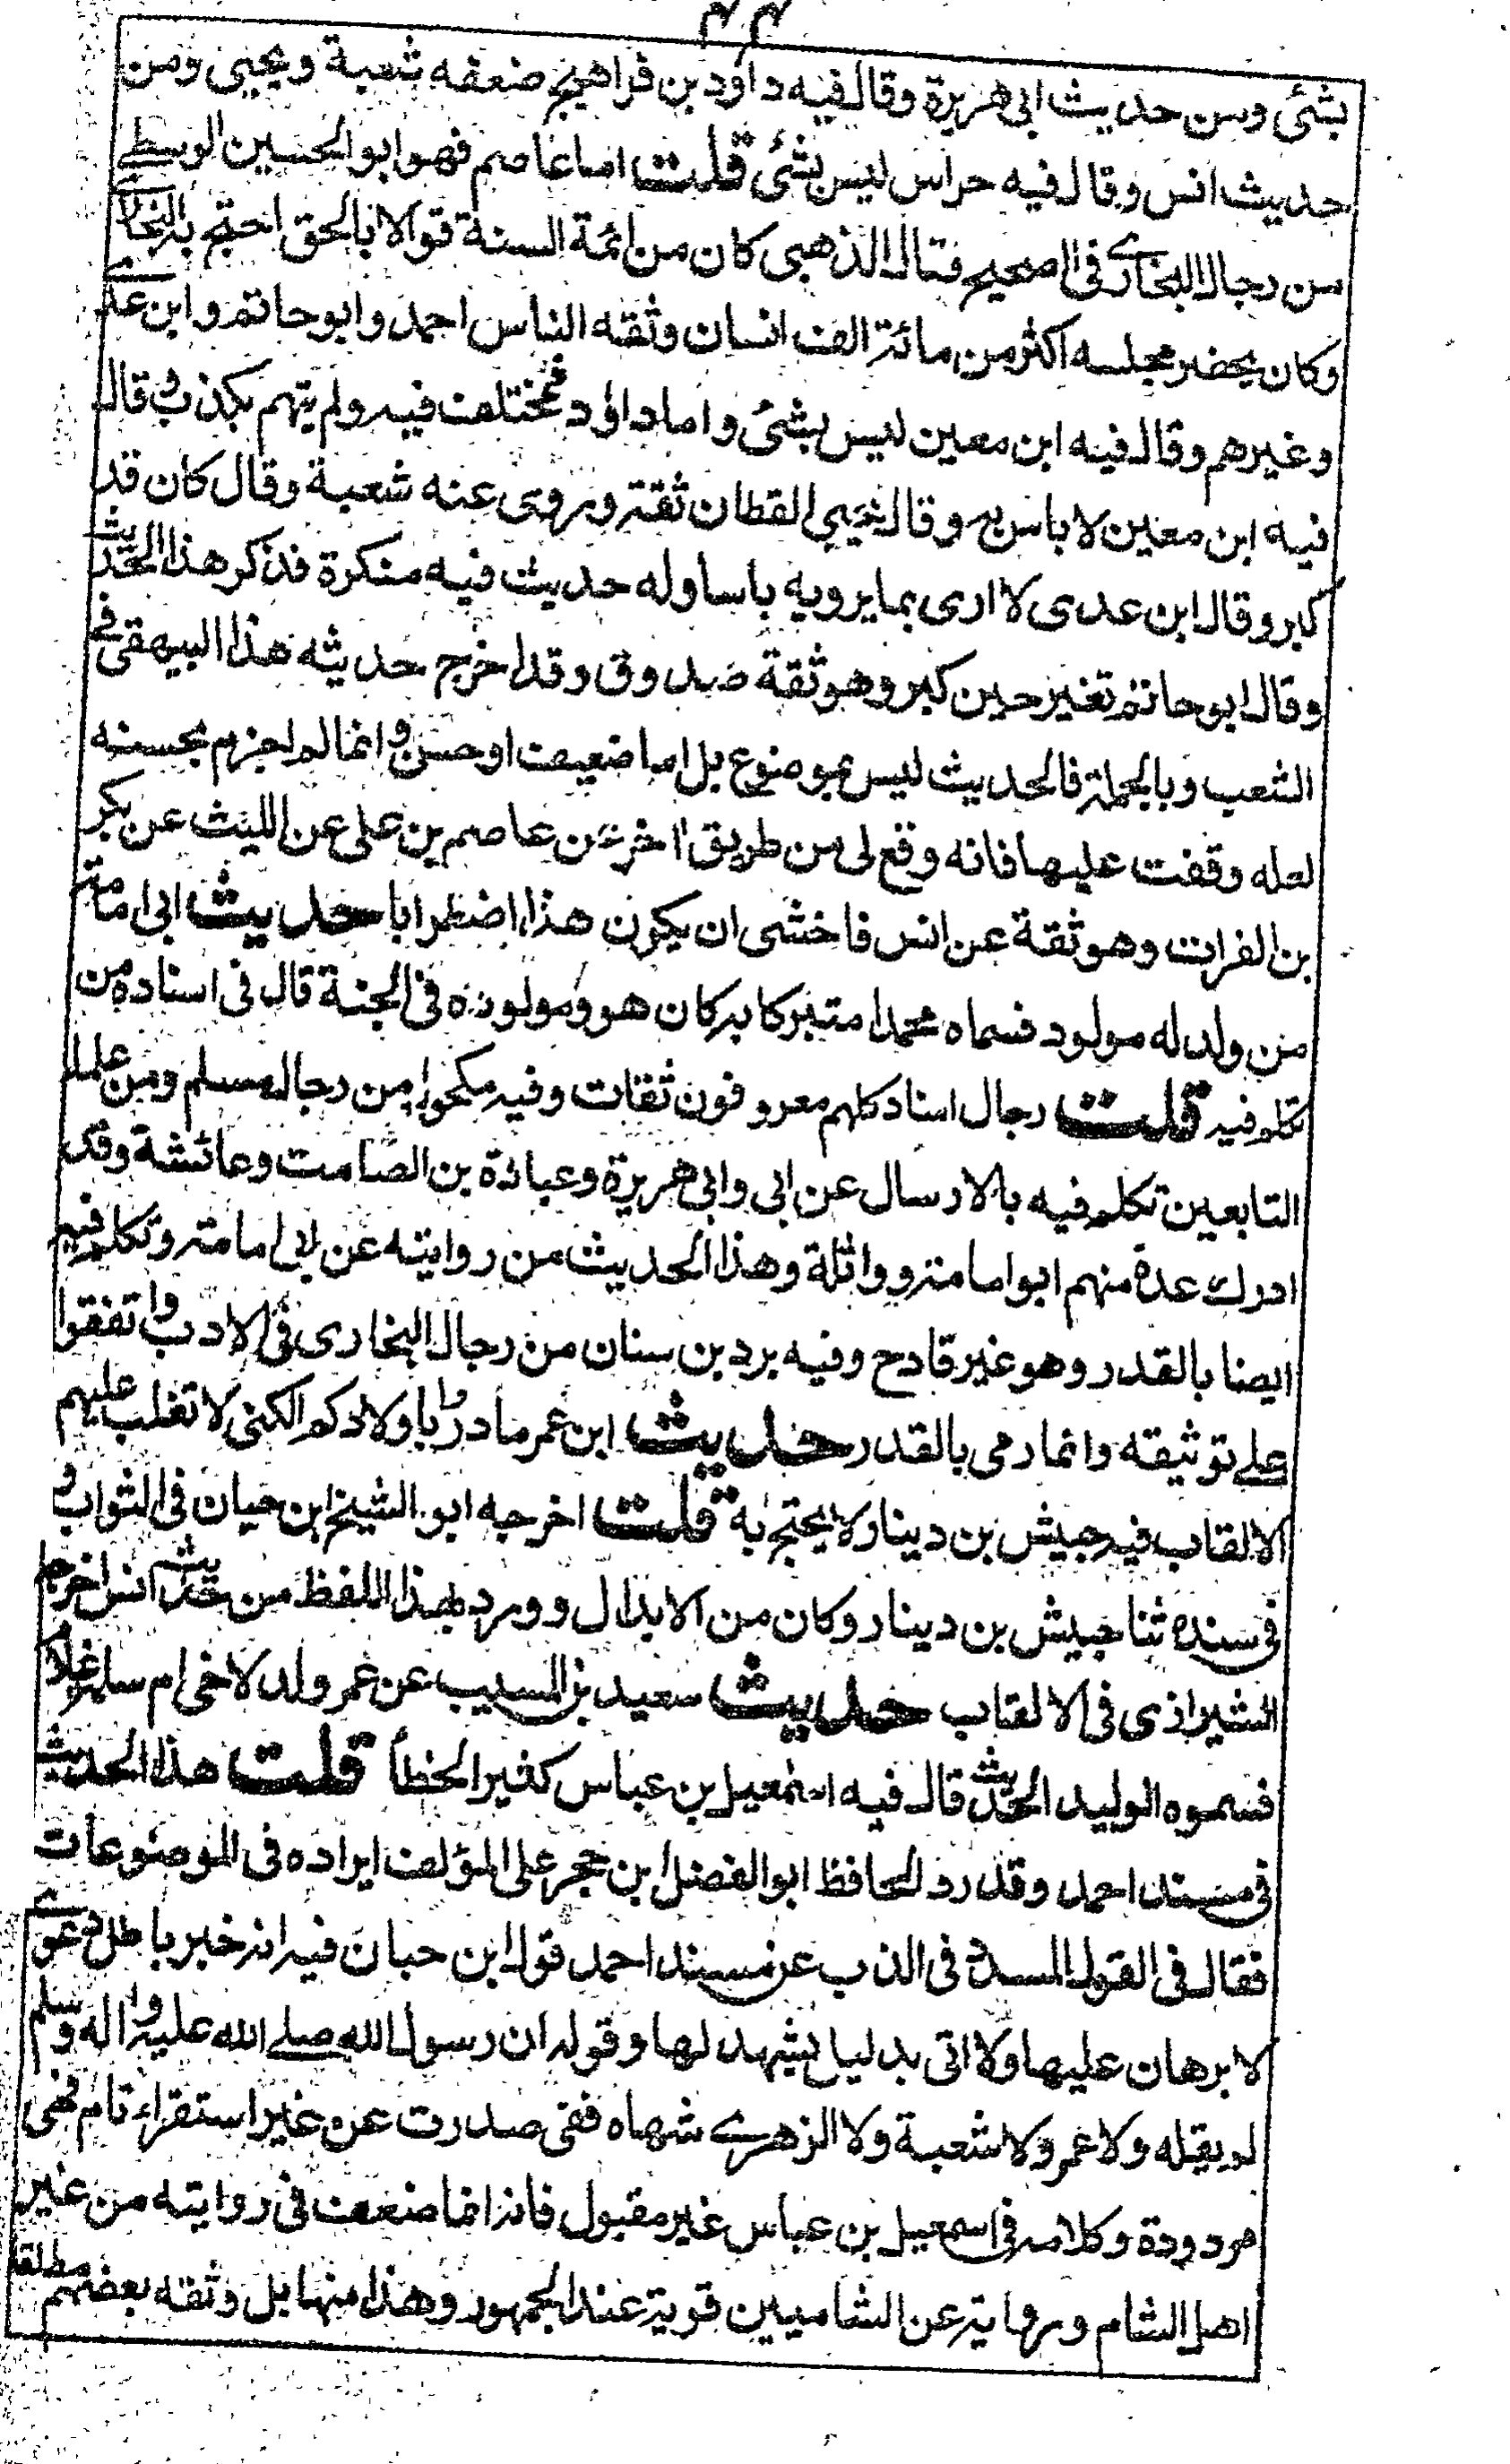 ۴۴
بشئ ومن حديث ابى هريرة وقال فيه داؤد بن فراهيج ضعفه شعبة ويحيى ومن
حديث انس وقال فيه حراس ليس بشئ قلت اما عاصم فهو ابو الحسين الوسطے
من رجال البخارى فى الصحيح فقال الذهبى كان من ائمة السنة قوالا بالحق احتج به البخارى
وكان يحضر مجلسه اكثر من مائة الف انسان وثقه الناس احمد وابو حاتم وابن عدى
وغيرهم وقال فيه ابن معين ليس بشئ واما داؤد فمختلف فيه ولم يتهم بكذب وقال
فيه ابن معين لا باس به وقال يحيى القطان ثقة وروى عنه شعبة وقال كان قد
كبر وقال ابن عدى لا ارى بما يرويه باسا وله حديث فيه منكرة فذكر هذا الحديث
وقال ابو حاتم تغير حين كبر وهو ثقة صدوق وقد اخرج حديثه هذا البيهقى فے
الشعب وبالجملة فالحديث ليس بموضوع بل اما ضعيف او حسن وانما لم اجزم بحسنه
لعله وقفت عليها فانه وقع لى من طريق اخر عن عاصم بن على عن الليث عن بكر
بن الفرات وهو ثقة عن انس فاخشى ان يكون هذا اضطرابا حديث ابى امامة
من ولد له مولود فسماه محمدا متبركا به كان هو ومولوده فى الجنة قال فى اسناده من
تكلم فيه قلت رجال اسناد كلهم معروفون ثقات وفيه مكحول من رجال مسلم ومن علماء
التابعين تكلم فيه بالارسال عن ابى وابى هريرة وعبادة بن الصامت وعائشة وقد
ادرك عدة منهم ابو امامة وواثلة وهذا الحديث من روايته عن ابى امامة وتكلم فيه
ايضا بالقدر وهو غير قادح وفيه برد بن سنان من رجال البخارى فى الادب واتفقوا
علے توثيقه وانما رمى بالقدر حديث ابن عمر مادروا باولادكم الكنى لا تغلب عليهم
الالقاب فيه جيش بن دينار لا يحتج به قلت اخرجه ابو الشيخ ابن حيان فى الثواب و
فى سنده ثنا جيش بن دينار وكان من الابدال وورد بهذا اللفظ من حديث انس اخرجه
الشيرازى فى الالقاب حديث سعيد بن المسيب عن عمر ولد لاخى ام سلمة غلام
فسموه الوليد الحديث قال فيه اسمعيل بن عباس كثير الخطأ قلت هذا الحديث
فى مسند احمد وقد رد الحافظ ابو الفضل ابن حجر على المؤلف ايراده فى الموضوعات
فقال فى القول المسدد فى الذب عن مسند احمد قول ابن حبان فيه انه خبر باطل دعوے
لا برهان عليها ولا اتى بدليل يشهد لها وقوله ان رسول الله صلے الله عليه واله وسلم
لم يقله ولا عمر ولا شعبة ولا الزهرے شهاه ففى صدرت عن غير استقراء تام فهى
مردودة وكلامه فى اسمعيل بن عباس غير مقبول فانه انما ضعف فى روايته من غير
اهل الشام وروايته عن الشاميين قوية عند الجمهور وهذا منها بل وثقه بعضهم مطلقا